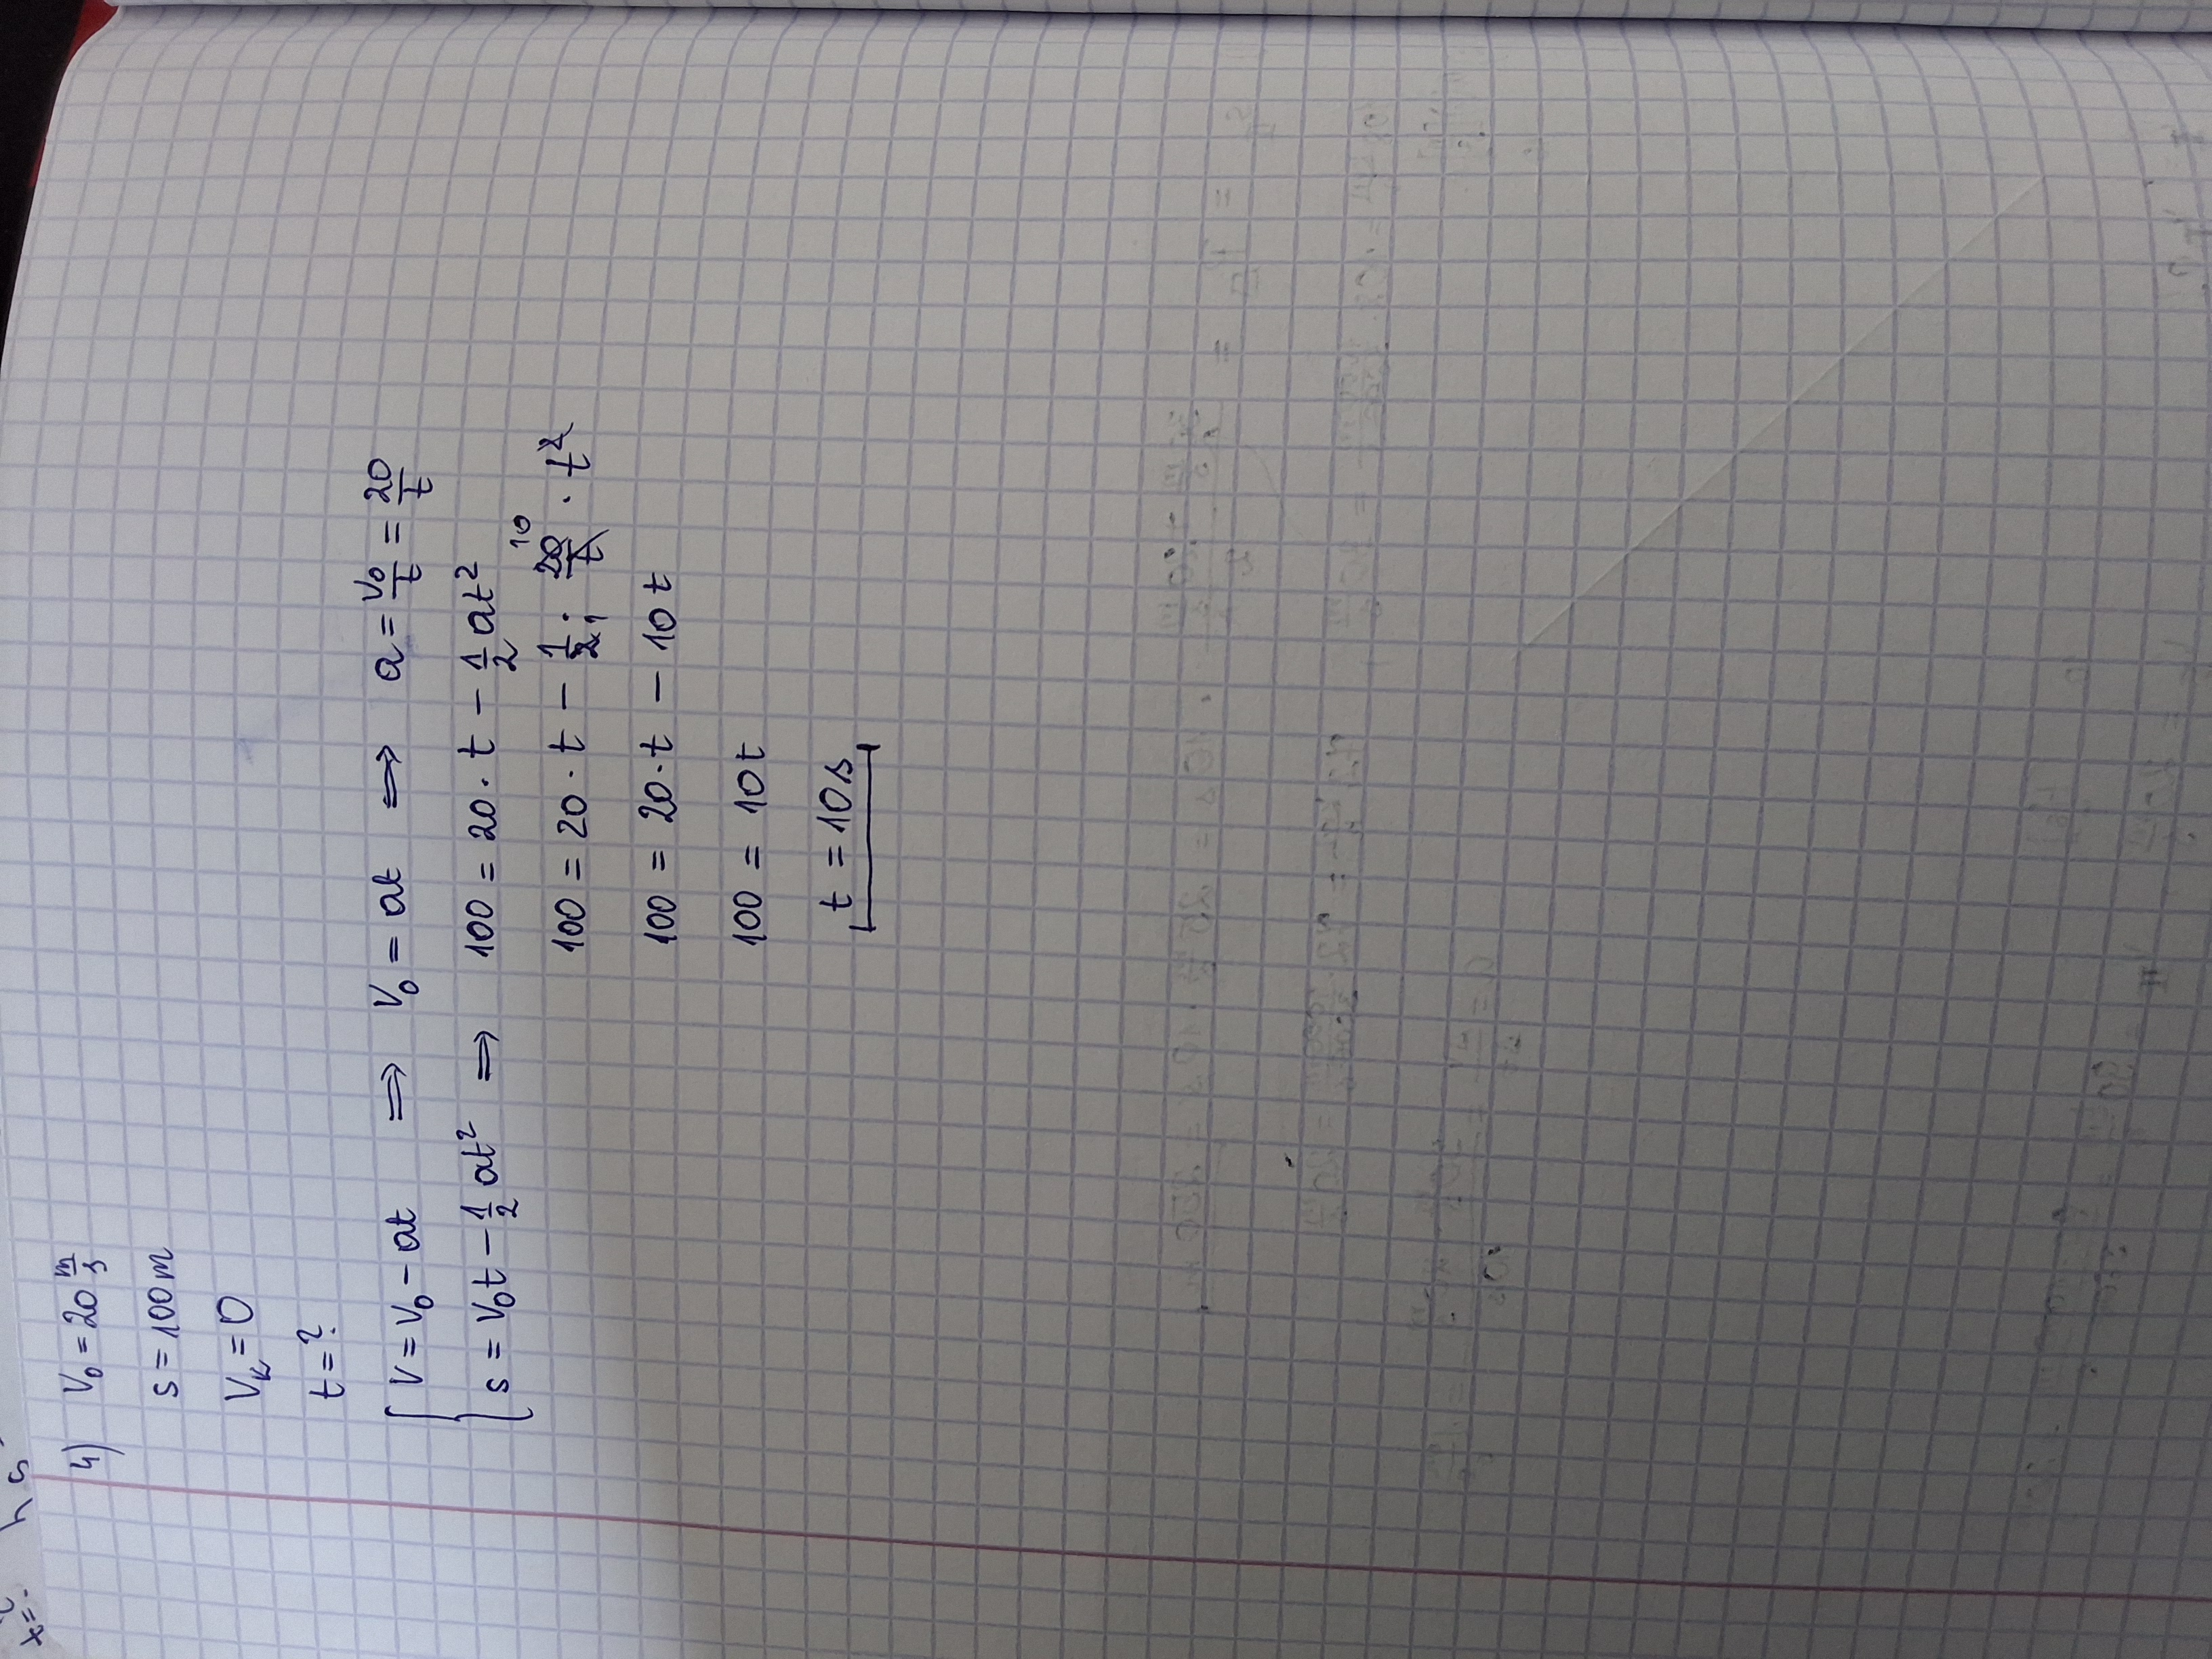 4) V₀ = 20 m/s
s = 100 m
Vₖ = 0
t = ?
{ V = V₀ - at ⟹ V₀ = at ⟹ a = V₀/t = 20/t
{ s = V₀t - 1/2 at² ⟹ 100 = 20 · t - 1/2 at²
100 = 20 · t - 1/2 · 20/t · t² 10 1
100 = 20 · t - 10 t
100 = 10 t
t = 10 s